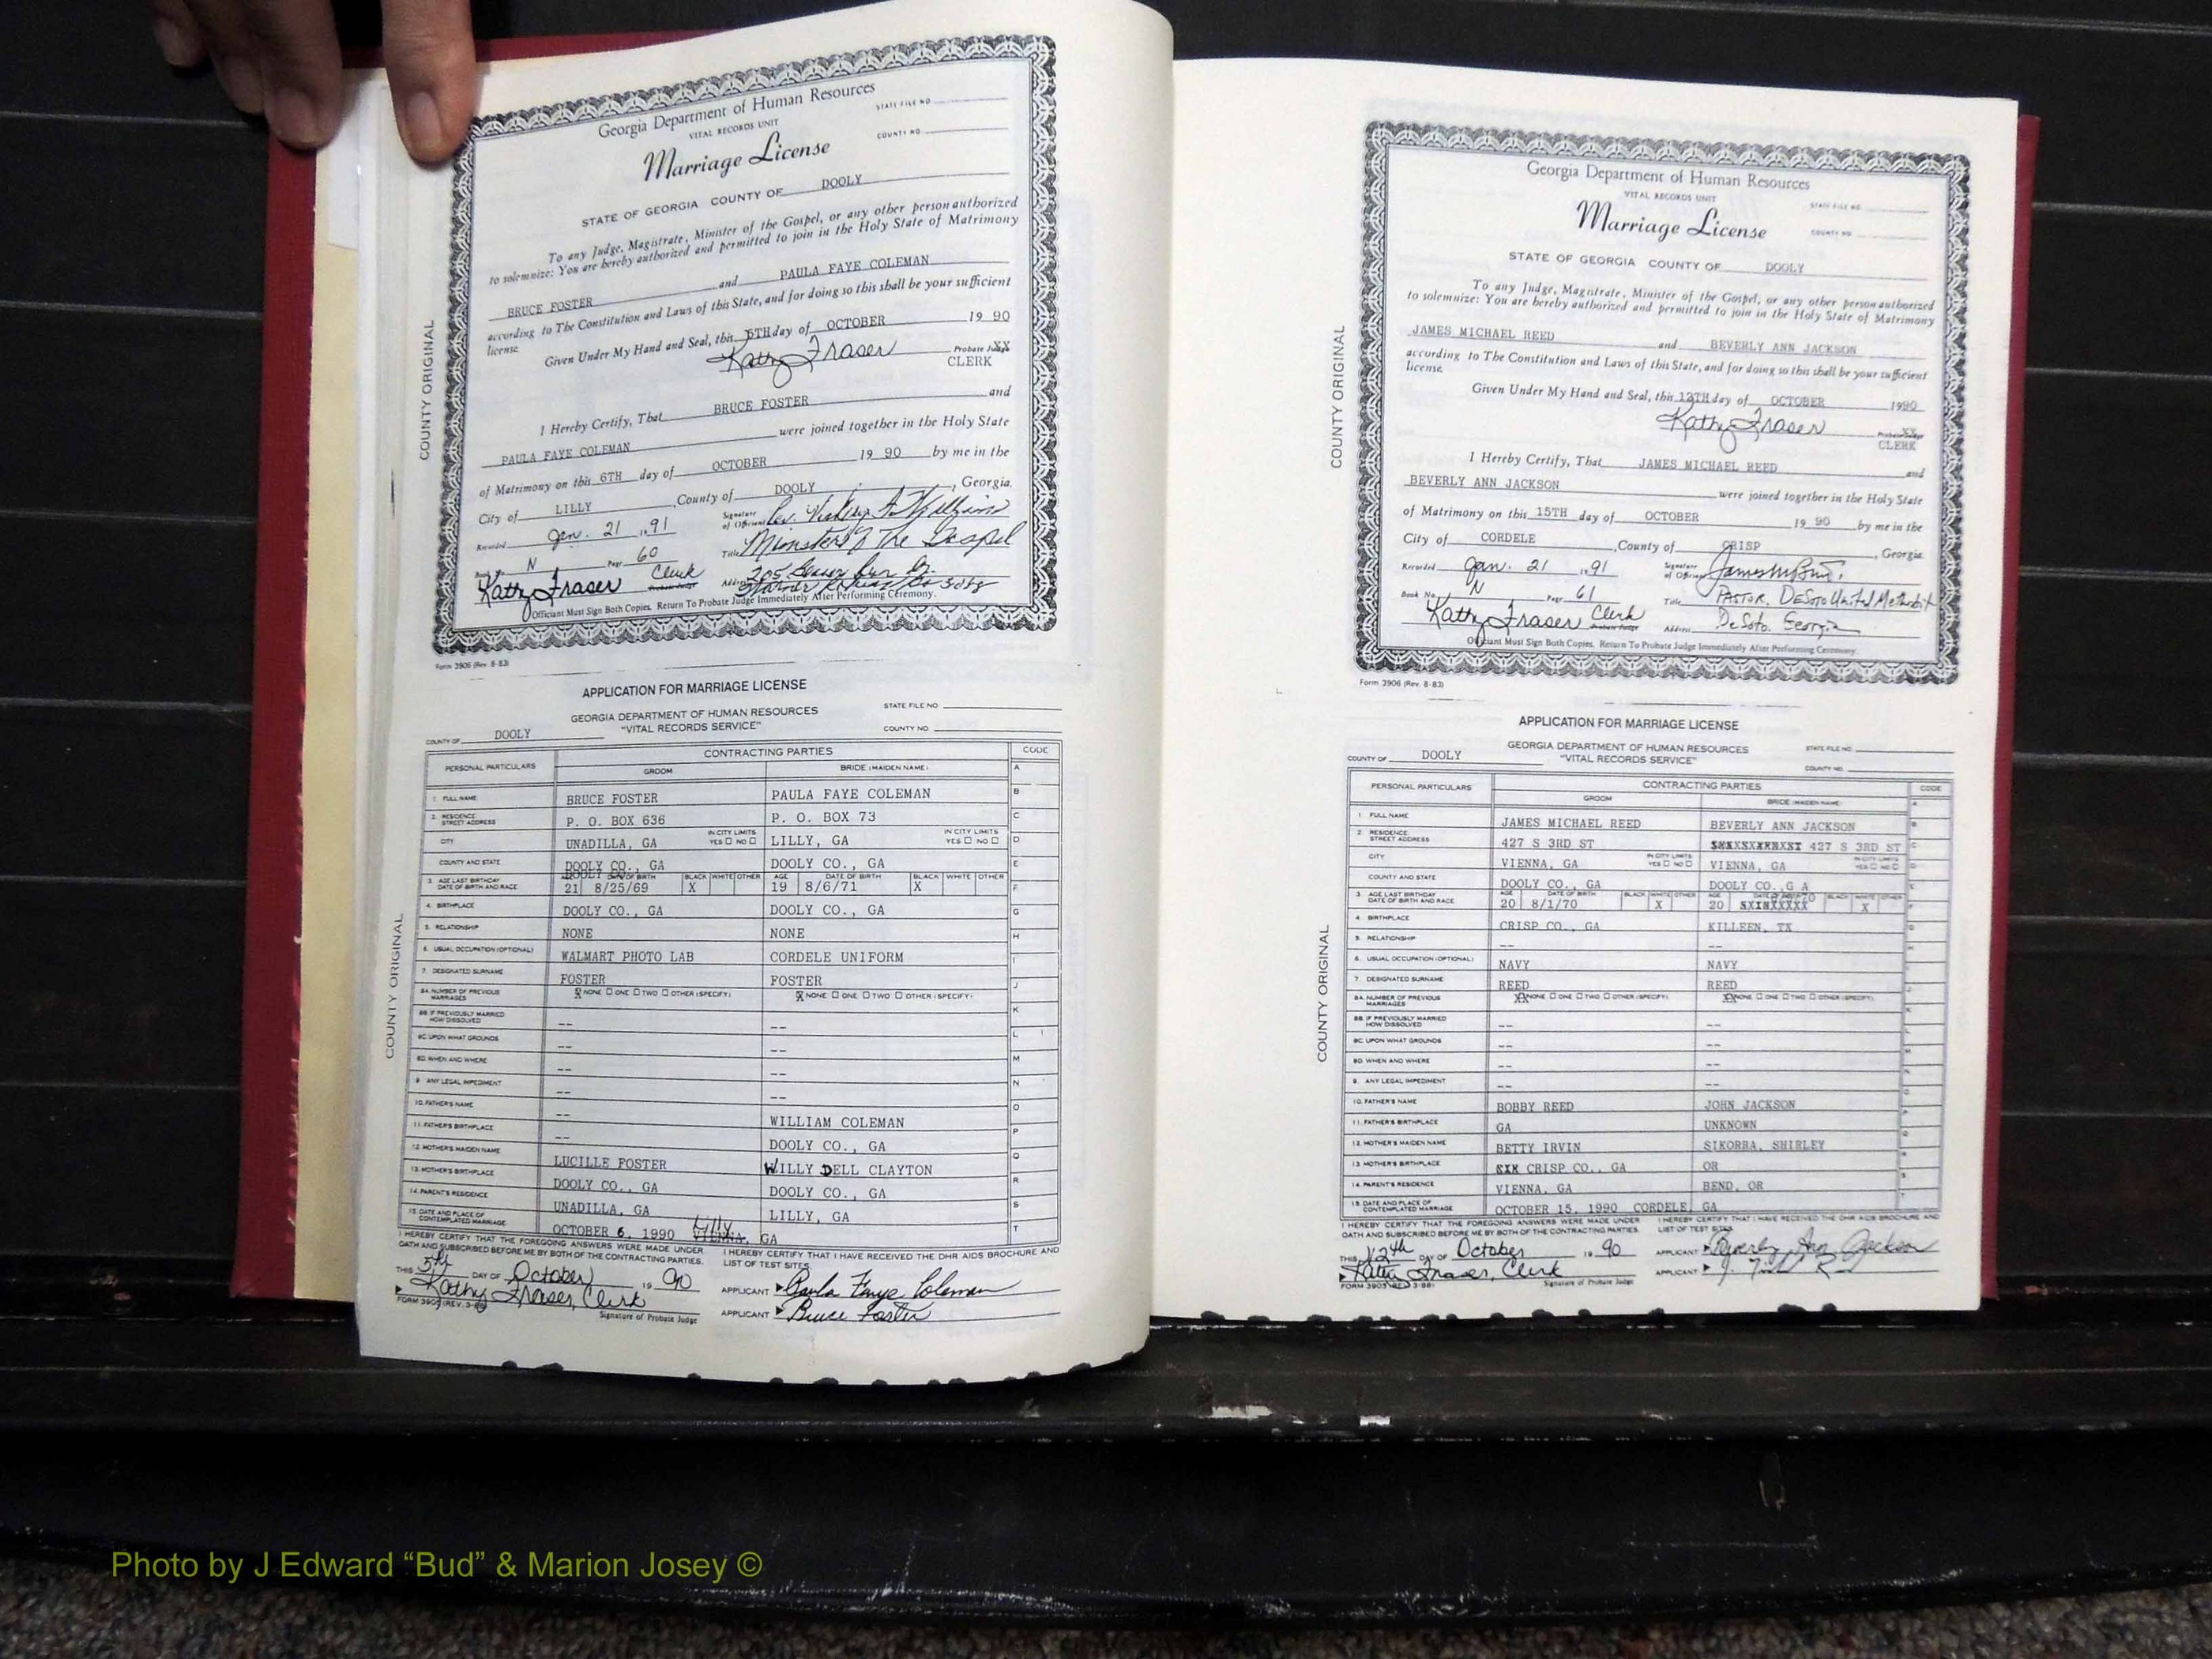 Georgia Department of Human Resources
VITAL RECORDS UNIT
STATE FILE NO.
COUNTY NO.
Marriage License
STATE OF GEORGIA COUNTY OF DOOLY
To any Judge, Magistrate, Minister of the Gospel, or any other person authorized
to solemnize: You are hereby authorized and permitted to join in the Holy State of Matrimony
BRUCE FOSTER and PAULA FAYE COLEMAN
according to The Constitution and Laws of this State, and for doing so this shall be your sufficient
license.
Given Under My Hand and Seal, this 5TH day of OCTOBER 19 90
Kathy Fraser Probate Judge
CLERK
I Hereby Certify, That BRUCE FOSTER and
PAULA FAYE COLEMAN were joined together in the Holy State
of Matrimony on this 6TH day of OCTOBER 19 90 by me in the
City of LILLY, County of DOOLY, Georgia.
Recorded Jan. 21 1991 Signature of Officiant Rev.
Book No. N Page 60 Title Minister of The Gospel
Kathy Fraser Clerk Probate Judge Address 205
Officiant Must Sign Both Copies. Return To Probate Judge Immediately After Performing Ceremony.
COUNTY ORIGINAL
Form 3906 (Rev. 8-83)
APPLICATION FOR MARRIAGE LICENSE
GEORGIA DEPARTMENT OF HUMAN RESOURCES
"VITAL RECORDS SERVICE"
STATE FILE NO.
COUNTY NO.
COUNTY OF DOOLY
PERSONAL PARTICULARS CONTRACTING PARTIES CODE
GROOM BRIDE (MAIDEN NAME) A
1. FULL NAME BRUCE FOSTER PAULA FAYE COLEMAN B
2. RESIDENCE STREET ADDRESS P. O. BOX 636 P. O. BOX 73 C
CITY UNADILLA, GA IN CITY LIMITS YES NO LILLY, GA IN CITY LIMITS YES NO D
COUNTY AND STATE DOOLY CO., GA DOOLY CO., GA E
3. AGE LAST BIRTHDAY DATE OF BIRTH AND RACE 21 8/25/69 BLACK X WHITE OTHER AGE 19 DATE OF BIRTH 8/6/71 BLACK X WHITE OTHER F
4. BIRTHPLACE DOOLY CO., GA DOOLY CO., GA G
5. RELATIONSHIP NONE NONE H
6. USUAL OCCUPATION (OPTIONAL) WALMART PHOTO LAB CORDELE UNIFORM I
7. DESIGNATED SURNAME FOSTER FOSTER J
8A. NUMBER OF PREVIOUS MARRIAGES X NONE ONE TWO OTHER (SPECIFY) X NONE ONE TWO OTHER (SPECIFY)
8B. IF PREVIOUSLY MARRIED HOW DISSOLVED -- -- K
8C. UPON WHAT GROUNDS -- -- L
8D. WHEN AND WHERE -- -- M
9. ANY LEGAL IMPEDIMENT -- -- N
10. FATHER'S NAME -- WILLIAM COLEMAN O
11. FATHER'S BIRTHPLACE -- DOOLY CO., GA P
12. MOTHER'S MAIDEN NAME LUCILLE FOSTER WILLY DELL CLAYTON Q
13. MOTHER'S BIRTHPLACE DOOLY CO., GA DOOLY CO., GA R
14. PARENT'S RESIDENCE UNADILLA, GA LILLY, GA S
15. DATE AND PLACE OF CONTEMPLATED MARRIAGE OCTOBER 6, 1990 Lilly VIENNA, GA T
I HEREBY CERTIFY THAT THE FOREGOING ANSWERS WERE MADE UNDER
OATH AND SUBSCRIBED BEFORE ME BY BOTH OF THE CONTRACTING PARTIES.
I HEREBY CERTIFY THAT I HAVE RECEIVED THE DHR AIDS BROCHURE AND
LIST OF TEST SITES.
THIS 5th DAY OF October 19 90
APPLICANT Paula Faye Coleman
Kathy Fraser, Clerk
FORM 3905 (REV. 3-88) Signature of Probate Judge
APPLICANT Bruce Foster
COUNTY ORIGINAL
Georgia Department of Human Resources
VITAL RECORDS UNIT
STATE FILE NO.
Marriage License
COUNTY NO.
STATE OF GEORGIA COUNTY OF DOOLY
To any Judge, Magistrate, Minister of the Gospel, or any other person authorized
to solemnize: You are hereby authorized and permitted to join in the Holy State of Matrimony
JAMES MICHAEL REED and BEVERLY ANN JACKSON
according to The Constitution and Laws of this State, and for doing so this shall be your sufficient
license.
Given Under My Hand and Seal, this 12TH day of OCTOBER 1990
Kathy Fraser Probate Judge
CLERK
I Hereby Certify, That JAMES MICHAEL REED and
BEVERLY ANN JACKSON were joined together in the Holy State
of Matrimony on this 15TH day of OCTOBER 19 90 by me in the
City of CORDELE, County of CRISP, Georgia.
Recorded Jan. 21 1991 Signature of Officiant
Book No. N Page 61 Title PASTOR, DeSoto United Methodist
Kathy Fraser Clerk Probate Judge Address DeSoto, Georgia
Officiant Must Sign Both Copies. Return To Probate Judge Immediately After Performing Ceremony.
COUNTY ORIGINAL
Form 3906 (Rev. 8-83)
APPLICATION FOR MARRIAGE LICENSE
GEORGIA DEPARTMENT OF HUMAN RESOURCES
"VITAL RECORDS SERVICE"
STATE FILE NO.
COUNTY NO.
COUNTY OF DOOLY
PERSONAL PARTICULARS CONTRACTING PARTIES CODE
GROOM BRIDE (MAIDEN NAME)
1. FULL NAME JAMES MICHAEL REED BEVERLY ANN JACKSON
2. RESIDENCE STREET ADDRESS 427 S 3RD ST 427 S 3RD ST
CITY VIENNA, GA IN CITY LIMITS YES NO VIENNA, GA IN CITY LIMITS YES NO
COUNTY AND STATE DOOLY CO., GA DOOLY CO.,G A
3. AGE LAST BIRTHDAY DATE OF BIRTH AND RACE AGE 20 DATE OF BIRTH 8/1/70 BLACK WHITE X OTHER AGE 20 BLACK WHITE X OTHER
4. BIRTHPLACE CRISP CO., GA KILLEEN, TX
5. RELATIONSHIP -- --
6. USUAL OCCUPATION (OPTIONAL) NAVY NAVY
7. DESIGNATED SURNAME REED REED
8A. NUMBER OF PREVIOUS MARRIAGES NONE ONE TWO OTHER (SPECIFY) NONE ONE TWO OTHER (SPECIFY)
8B. IF PREVIOUSLY MARRIED HOW DISSOLVED -- --
8C. UPON WHAT GROUNDS -- --
8D. WHEN AND WHERE -- --
9. ANY LEGAL IMPEDIMENT -- --
10. FATHER'S NAME BOBBY REED JOHN JACKSON
11. FATHER'S BIRTHPLACE GA UNKNOWN
12. MOTHER'S MAIDEN NAME BETTY IRVIN SIKORRA, SHIRLEY
13. MOTHER'S BIRTHPLACE CRISP CO., GA OR
14. PARENT'S RESIDENCE VIENNA, GA BEND, OR
15. DATE AND PLACE OF CONTEMPLATED MARRIAGE OCTOBER 15, 1990 CORDELE, GA
I HEREBY CERTIFY THAT THE FOREGOING ANSWERS WERE MADE UNDER
OATH AND SUBSCRIBED BEFORE ME BY BOTH OF THE CONTRACTING PARTIES.
I HEREBY CERTIFY THAT I HAVE RECEIVED THE DHR AIDS BROCHURE AND
LIST OF TEST SITES.
THIS 12th DAY OF October 19 90
APPLICANT Beverly Ann Jackson
Kathy Fraser, Clerk
FORM 3905 (REV. 3-88) Signature of Probate Judge
APPLICANT
COUNTY ORIGINAL
Photo by J Edward “Bud” & Marion Josey ©